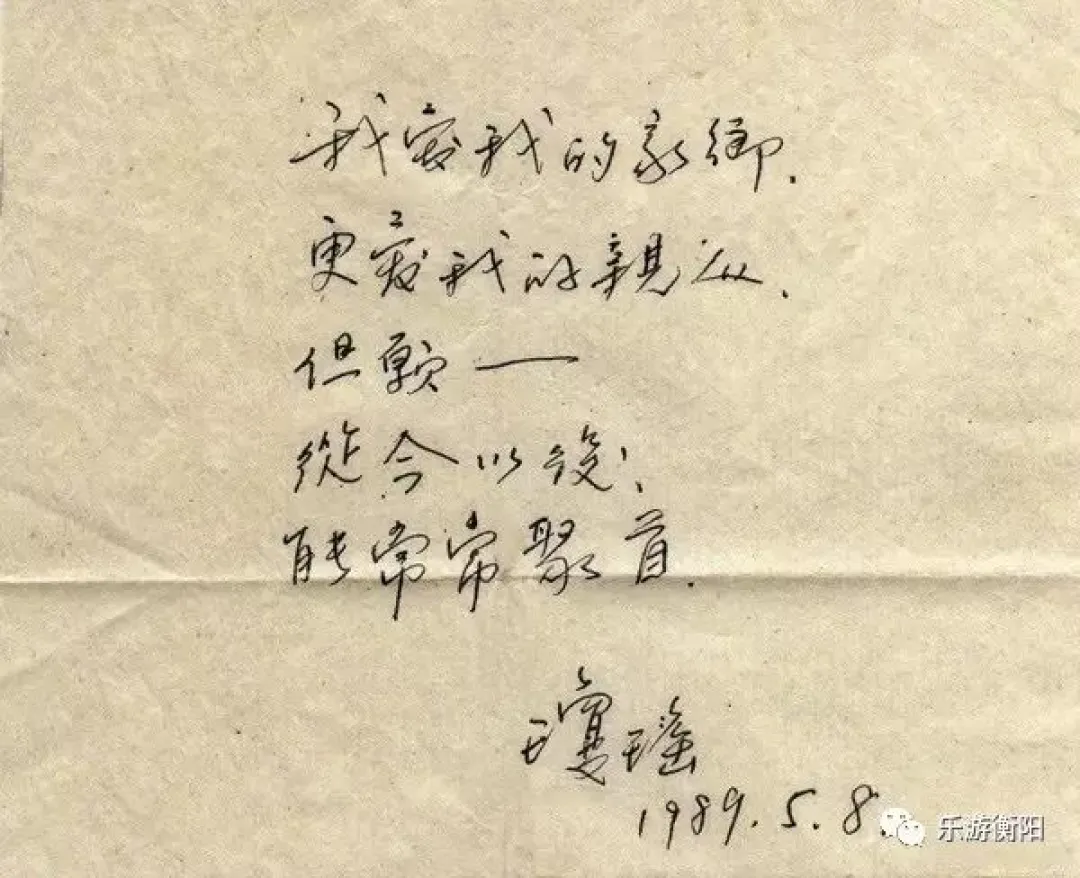 我愛我的家鄉.
更愛我的親人.
但願——
從今以後,
能常常聚首.
瓊瑤
1989.5.8.
乐游衡阳